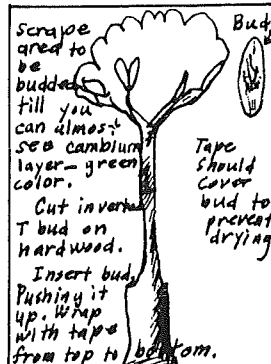 scrape
area to
be
budded
till you
can almost
see cambium
layer - green
color.
Cut invert
T bud on
hardwood.
Insert bud,
Pushing it
up. Wrap
with tape
from top to bottom.
Bud
Tape
should
cover
bud to
prevent
drying